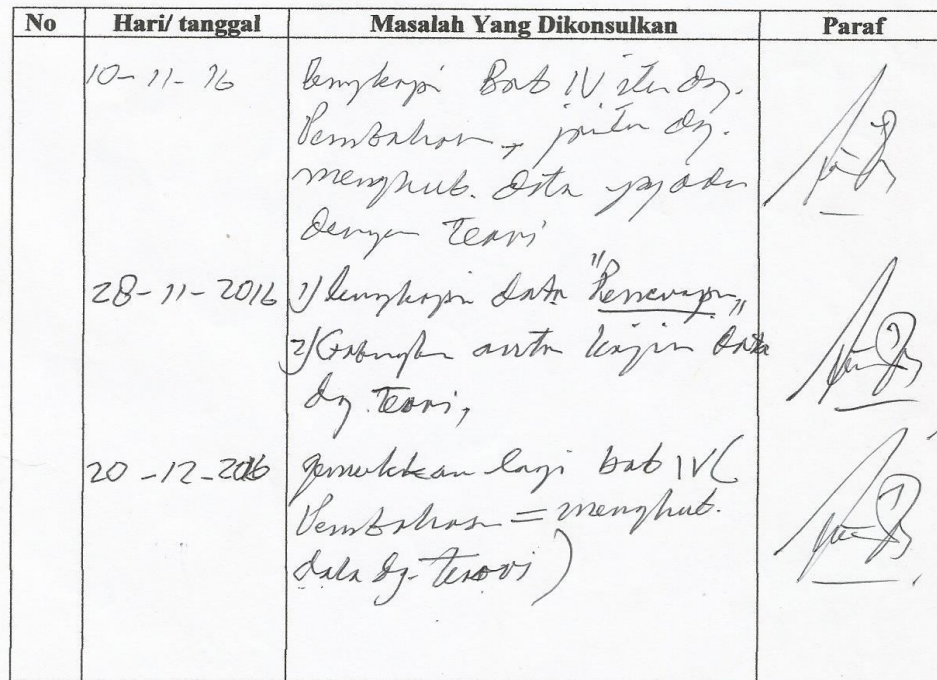 No Hari/ tanggal Masalah Yang Dikonsulkan Paraf
10-11-16 lengkapi Bab IV dg.
Pembahasan, yaitu dg.
menghub. data yg ada
dengan Teori
28-11-2016 1) lengkapi data "Penerapan"
2) Gabungkan antra kajian Data
dg. Teori,
20-12-2016 lagi bab IV (
Pembahasan = menghub.
data dg. Teori)